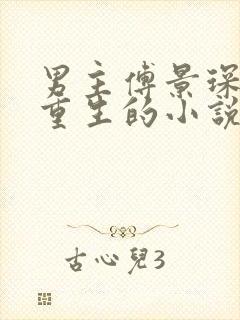 男主傅景琛
重生的小說
古心兒3